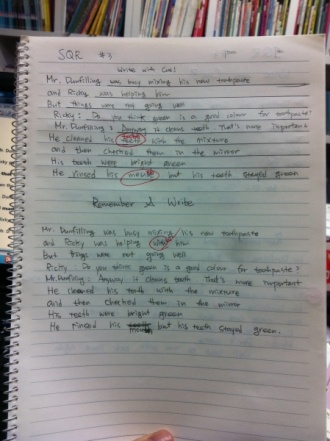 SQR #3
Write with Care!
Mr. Dunfilling was busy mixing his new toothpaste
and Ricky was helping him
But things were not going well
Ricky: Do you think green is a good colour for toothpaste?
Mr. Dunfilling: Anyway it cleans teeth That's more important
He cleaned his teeth with the mixture
and then checked them in the mirror
His teeth were bright green
He rinsed his mouth but his teeth stayed green
Remember & Write
Mr. Dunfilling was busy mixing his new toothpaste
and Ricky was helping him
But things were not going well
Ricky: Do you think green is a good colour for toothpaste?
Mr Dunfilling: Anyway it cleans teeth That's more important
He cleaned his teeth with the mixture
and then checked them in the mirror
His teeth were bright green
He rinsed his but his teeth stayed green.